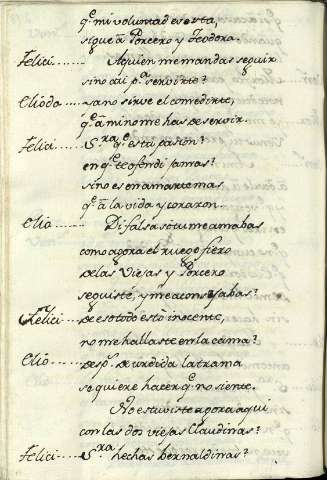 q̃ mi voluntad es esta,
sigue à Porcero y Teodora.
Felici...... A quien me mandas seguir
sino aû pª servirte?
Elioda.... ya no sirve el comedirte,
q̃ à mi no me has de servir.
Felici...... Sra. q̃ está pasion?
en q̃ te ofendi jamas?
sino es en amarte mas
q̃ à la vida y corazon.
Elio.... Di falsa si tu me amabas
como agora el ruego fiero
de las Viejas y Porcero
seguiste, y me aconsejabas?
Felici.... de eso todo estò inocente,
no me hallaste en la cama?
Elio.... desp.s de urdida la trama
se quiere hacer q̃ no siente.
No estuviste agora aqui
con las dos viejas Claudinas?
Felici.... Sra. hechas bernaldinas?